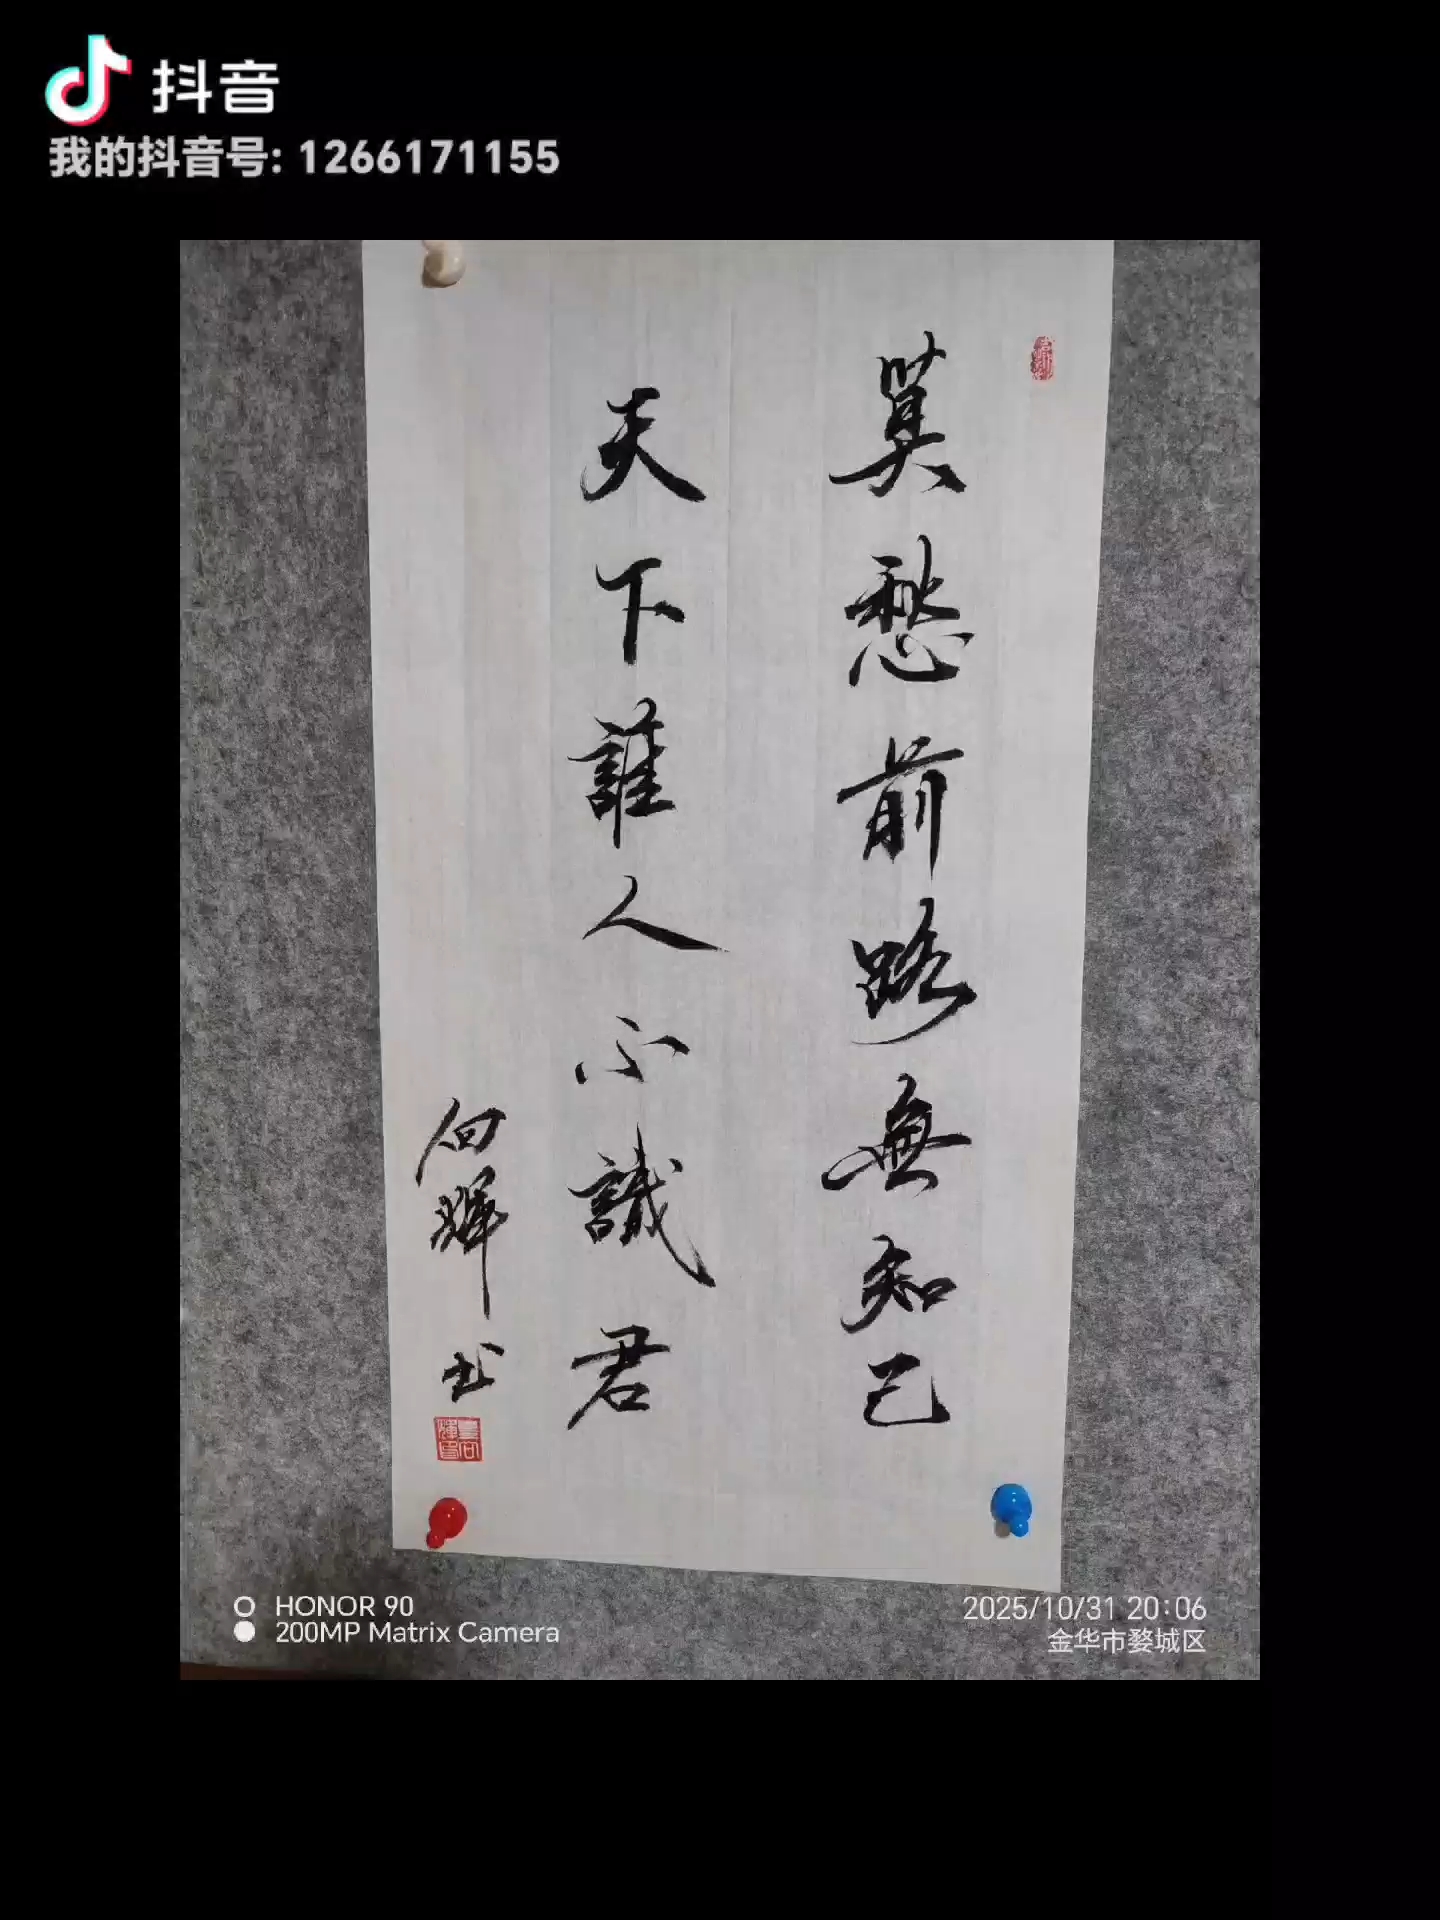 抖音
我的抖音号: 1266171155
莫愁前路無知己
天下誰人不識君
向輝书
HONOR 90
200MP Matrix Camera
2025/10/31 20:06
金华市婺城区